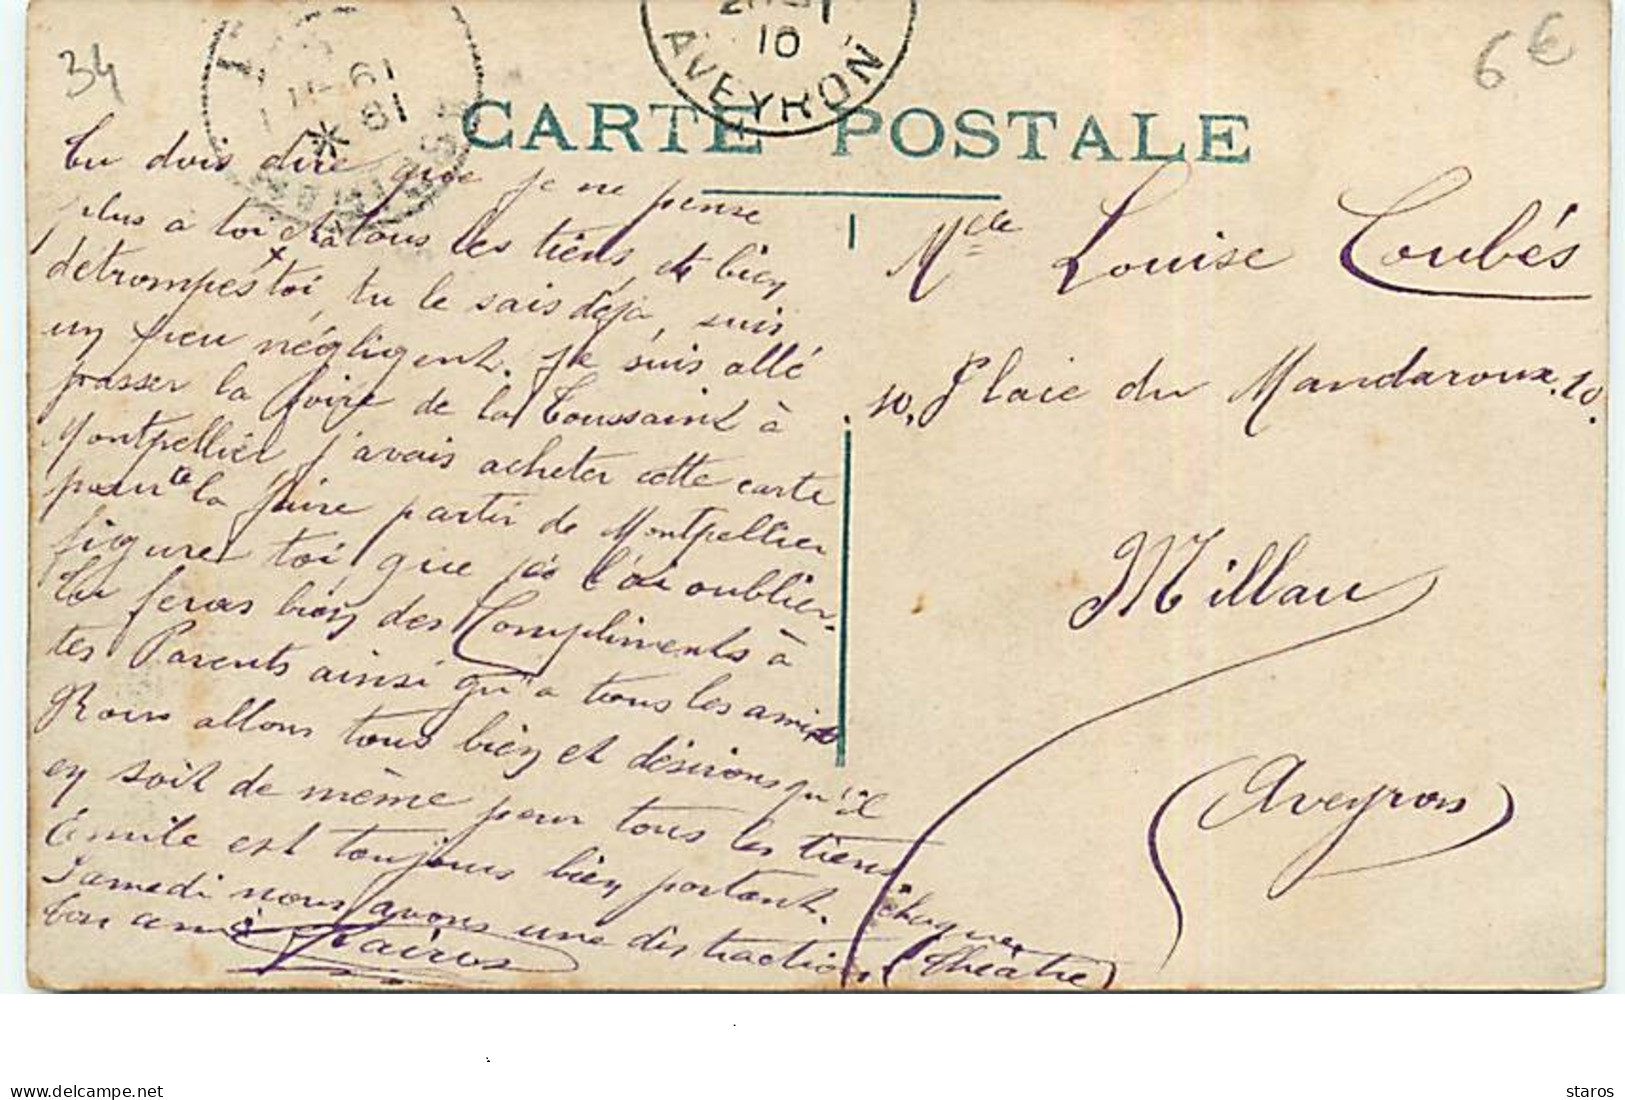 34
6 €
10
AVEYRON
CARTE POSTALE
Tu dois dire que je ne pense
plus a toi et a tous les tiens, bien
détrompes toi, tu le sais déja, suis
un peu négligent. Je suis allé
passer la foire de la Toussaint à
Montpellier j'avais acheter cette carte
pour te la faire partir de Montpellier
figure toi que je l'ai oublier.
Tu feras bien des Compliments à
tes Parents ainsi qu'a tous les amis
Nous allons tous bien et désirons qu'il
en soit de même pour tous les tiens
Emile est toujours bien portant.
Samedi nous avons une distraction (Théâtre)
ton ami
Melle Louise Coubés
10, Place du Mandaroux. 10.
Millau
(Aveyron)
www.delcampe.net
staros